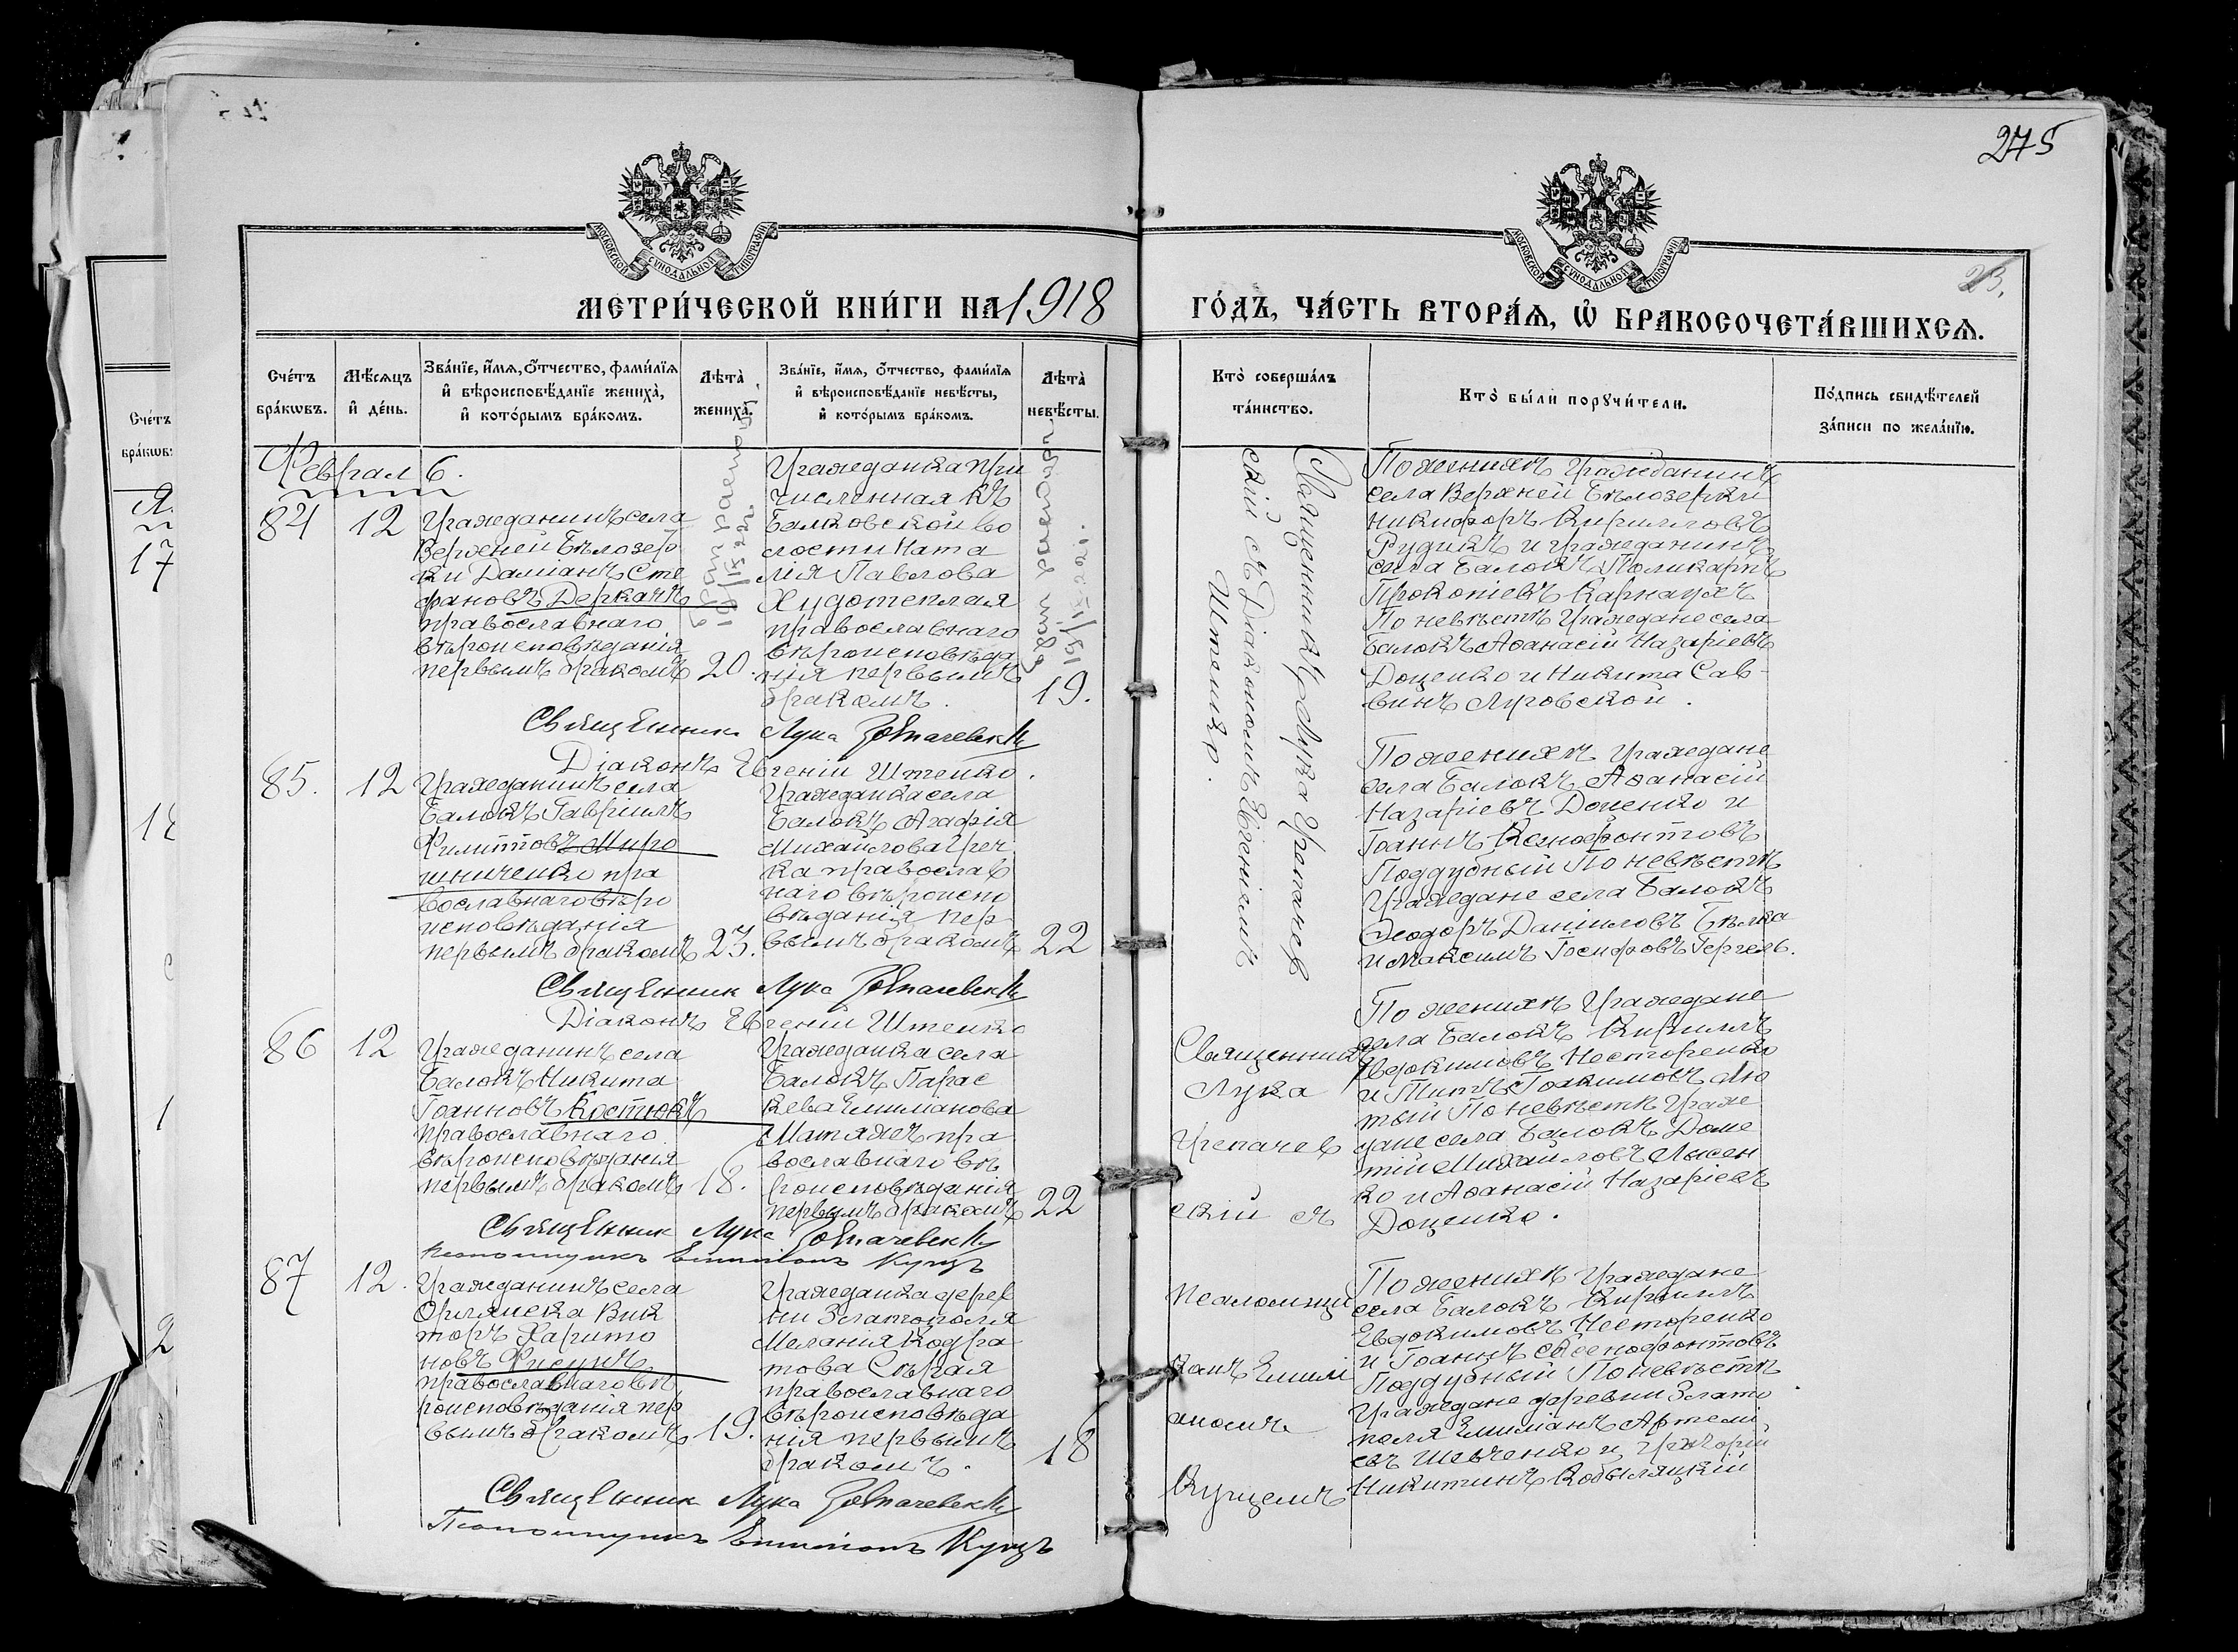 275
23.
МОСКОВСКОЙ СѴНОДАЛЬНОЙ ТИПОГРАФІИ
МОСКОВСКОЙ СѴНОДАЛЬНОЙ ТИПОГРАФІИ
МЕТРИ́ЧЕСКОЙ КНИ́ГИ НА 1918
ГО́ДЪ, ЧА́СТЬ ВТОРА́Ѧ, Ѽ БРАКОСОЧЕТА́ВШИХСѦ.
Сче́тъ
бра́кѡвъ.
Мѣ́сѧцъ
и҆ де́нь.
Зва́нїе, и҆́мѧ, ѻ҆́тчество, фами́лїѧ
и҆ вѣроисповѣ́данїе жениха̀,
и҆ кото́рымъ бра́комъ.
Лѣта̀
жениха̀.
Зва́нїе, и҆́мѧ, ѻ҆́тчество, фами́лїѧ
и҆ вѣроисповѣ́данїе невѣ́сты,
и҆ кото́рымъ бра́комъ.
Лѣта̀
невѣ́сты.
Кто̀ соверша́лъ
та́инство.
Кто̀ бы́ли порꙋчи́тели.
По́дпись свидѣ́телей
за́писи по жела́нїю.
Сче́тъ
бра́кѡвъ
17
2
Феврал 6.
84
12
Гражданинъ села
Верхней Бѣлозер
ки Даміанъ Сте
фановъ Деркачъ
православнаго
вѣроисповѣданія
первымъ бракомъ
20.
Гражданка при
численная къ
Балковской во
лости Ната
лія Павлова
Худотеплая
православнаго
вѣроисповѣда
нія первымъ
бракомъ.
19.
Священникъ Лука Грепачев
скій съ Діакономъ Евгеніемъ
Штепко.
По женихѣ Гражданинъ
села Верхней Бѣлозерки
Никифоръ Кирилловъ
Рудикъ и гражданинъ
села Балокъ Поликарпъ
Прокопіевъ Карнаухъ
По невѣстѣ Граждане села
Балокъ Аѳанасій Назаріевъ
Доценко и Никита Сав-
винъ Луговской.
Священникъ Лука
Діаконъ Евгеній Штепко.
85.
12
Гражданинъ села
Балокъ Гавріилъ
Филипповъ Миро
шниченко пра
вославнаго вѣро
исповѣданія
первымъ бракомъ
23.
Гражданка села
Балокъ Агафія
Михайлова Греч
ка православ
наго вѣроиспо
вѣданія пер
вымъ бракомъ
22
По женихѣ Граждане
села Балокъ Аѳанасій
Назаріевъ Доценко и
Іоаннъ Ксенофонтовъ
Поддубный По невѣстѣ
Граждане села Балокъ
Ѳеодоръ Даніиловъ Бѣлка
и Максимъ Іосифовъ Гергель.
Священник Лука
Діаконъ Евгеній Штепко
86
12
Гражданинъ села
Балокъ Никита
Іоанновъ Костюкъ
православнаго
вѣроисповѣданія
первымъ бракомъ
18.
Гражданка села
Балокъ Парас
кева Емиліанова
Матяжъ пра
вославнаго вѣ
роисповѣданія
первымъ бракомъ
22
Священникъ
Лука
Грепачев
скій съ
Псаломщи
комъ Емилі
аномъ
Купцемъ
По женихѣ Граждане
села Балокъ Кириллъ
Евдокимовъ Несторенко
и Титъ Іоакимовъ Лю
тый По невѣстѣ Граж
дане села Балокъ Доме
тій Михайловъ Лысен
ко и Аѳанасій Назаріевъ
Доценко.
Священник Лука
Псаломщикъ Емиліанъ Купцъ
87
12.
Гражданинъ села
Орлянска Вик
торъ Харито
новъ Фисунъ
православнаго вѣ
роисповѣданія пер
вымъ бракомъ
19.
Гражданка дерев
ни Златополя
Меланія Кодра
това Сѣрая
православнаго
вѣроисповѣда
нія первымъ
бракомъ.
18
По женихѣ Граждане
села Балокъ Кириллъ
Евдокимовъ Несторенко
и Іоаннъ Ксенофонтовъ
Поддубный По невѣстѣ
Граждане деревни Злато
поля Емиліанъ Артемі
евъ Шевченко и Григорій
Никитинъ Кобыляцкій
Священник Лука
Псаломщикъ Емиліанъ Купцъ